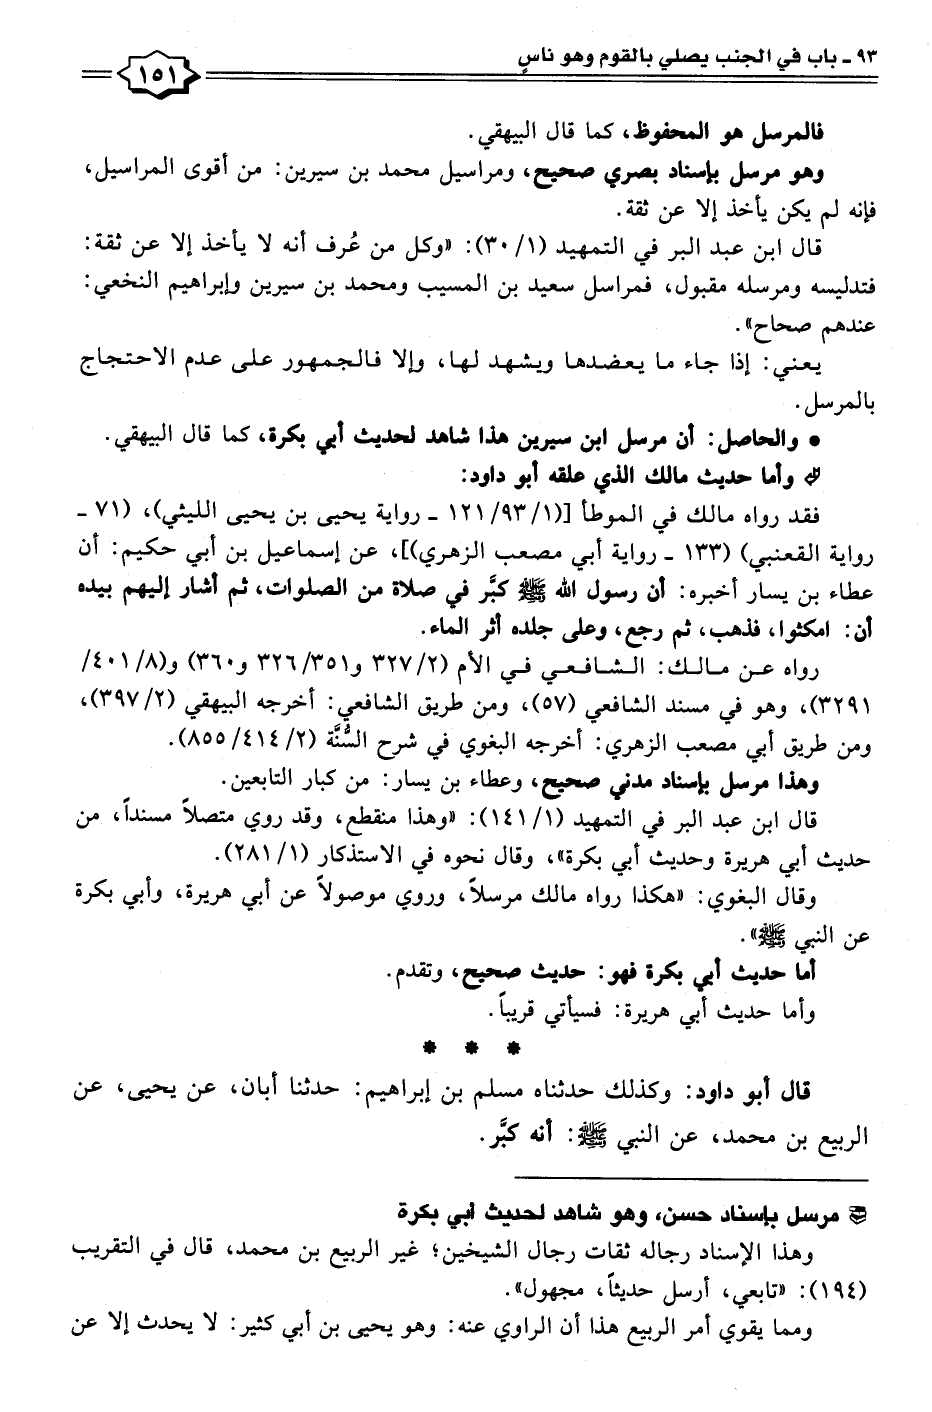 ٩٣ - باب في الجنب يصلي بالقوم وهو ناسٍ
١٥١
فالمرسل هو المحفوظ، كما قال البيهقي.
وهو مرسل بإسناد بصري صحيح، ومراسيل محمد بن سيرين: من أقوى المراسيل،
فإنه لم يكن يأخذ إلا عن ثقة.
قال ابن عبد البر في التمهيد (٣٠/١): «وكل من عُرف أنه لا يأخذ إلا عن ثقة:
فتدليسه ومرسله مقبول، فمراسل سعيد بن المسيب ومحمد بن سيرين وإبراهيم النخعي:
عندهم صحاح».
يعني: إذا جاء ما يعضدها ويشهد لها، وإلا فالجمهور على عدم الاحتجاج
بالمرسل.
• والحاصل: أن مرسل ابن سيرين هذا شاهد لحديث أبي بكرة، كما قال البيهقي.
وأما حديث مالك الذي علقه أبو داود:
فقد رواه مالك في الموطأ [(١٢١/٩٣/١ - رواية يحيى بن يحيى الليثي)، (٧١ -
رواية القعنبي) (١٣٣ - رواية أبي مصعب الزهري)]، عن إسماعيل بن أبي حكيم: أن
عطاء بن يسار أخبره: أن رسول الله ﷺ كبَّر في صلاة من الصلوات، ثم أشار إليهم بيده
أن: امكثوا، فذهب، ثم رجع، وعلى جلده أثر الماء.
رواه عن مالك: الشافعي في الأم (٣٢٧/٢ و٣٢٦/٣٥١ و٣٦٠) و(٤٠١/٨/
٣٢٩١)، وهو في مسند الشافعي (٥٧)، ومن طريق الشافعي: أخرجه البيهقي (٣٩٧/٢)،
ومن طريق أبي مصعب الزهري: أخرجه البغوي في شرح السُّنَّة (٨٥٥/٤١٤/٢).
وهذا مرسل بإسناد مدني صحيح، وعطاء بن يسار: من كبار التابعين.
قال ابن عبد البر في التمهيد (١٤١/١): «وهذا منقطع، وقد روي متصلاً مسنداً، من
حديث أبي هريرة وحديث أبي بكرة»، وقال نحوه في الاستذكار (٢٨١/١).
وقال البغوي: «هكذا رواه مالك مرسلاً، وروي موصولاً عن أبي هريرة، وأبي بكرة
عن النبي ﷺ».
أما حديث أبي بكرة فهو: حديث صحيح، وتقدم.
وأما حديث أبي هريرة: فسيأتي قريباً.
* * *
قال أبو داود: وكذلك حدثناه مسلم بن إبراهيم: حدثنا أبان، عن يحيى، عن
الربيع بن محمد، عن النبي ﷺ: أنه كبَّر.
مرسل بإسناد حسن، وهو شاهد لحديث أبي بكرة
وهذا الإسناد رجاله ثقات رجال الشيخين؛ غير الربيع بن محمد، قال في التقريب
(١٩٤): «تابعي، أرسل حديثاً، مجهول».
ومما يقوي أمر الربيع هذا أن الراوي عنه: وهو يحيى بن أبي كثير: لا يحدث إلا عن